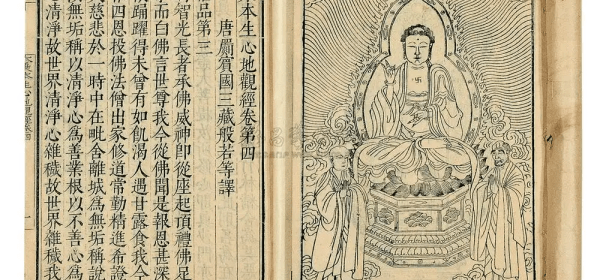 本生心地觀經卷第四
唐罽賓國三藏般若等譯
品第三
智光長者承佛威神即從座起頂禮佛足
而白佛言世尊我今從佛聞是報恩甚深
踴躍得未曾有如飢渴人遇甘露食我今
四恩投佛法僧出家修道常勤精進希證
慈悲於一時中在毗舍離城為無垢稱說
無垢稱以清淨心為善業根以不善心為
清淨故世界清淨心雜穢故世界雜穢我